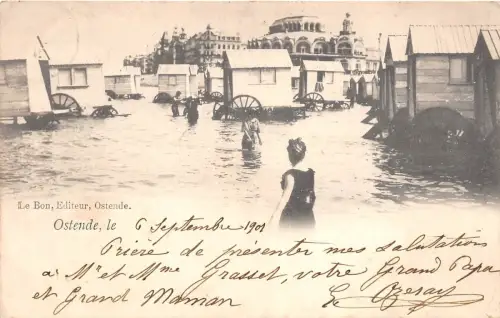 Le Bon, Editeur, Ostende.
Ostende, le 6 Septembre 1901
Prière de présenter mes salutations
à Mr et Mme Grasset, votre Grand Papa
et Grand Maman